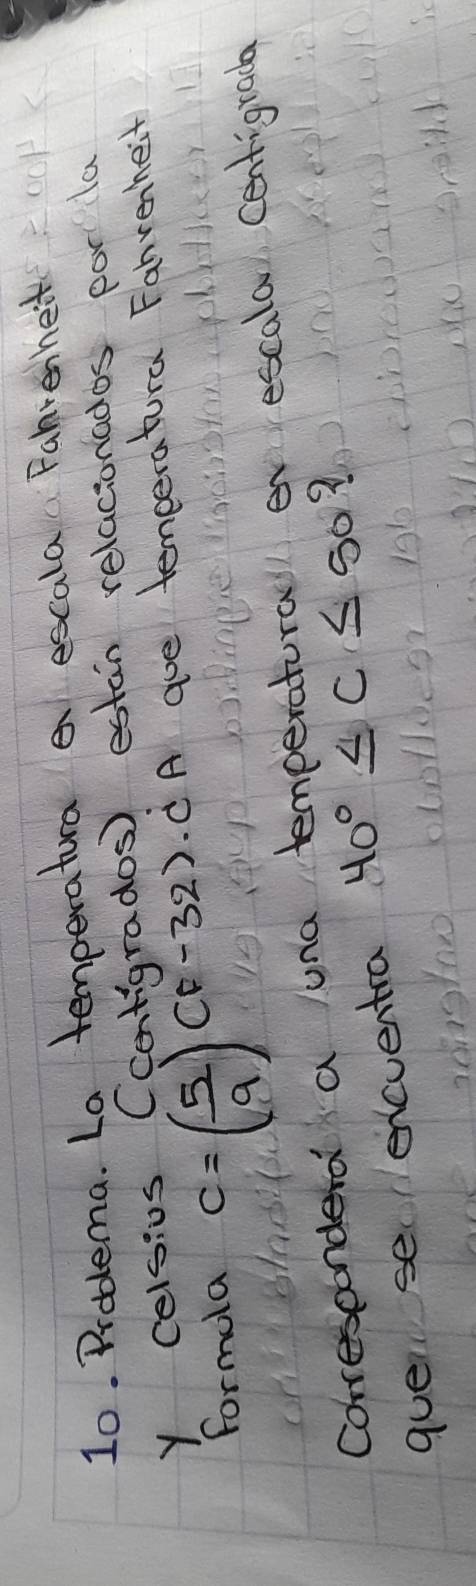 10. Problema. La temperatura en escala Fahrenheit
y Celsius (centígrados) están relacionados por la
formula C = (5/9) (F - 32). ¿A que temperatura Fahrenheit
corresponderá a una temperatura en escala centígrada
que se encuentra 40° ≤ C ≤ 50?